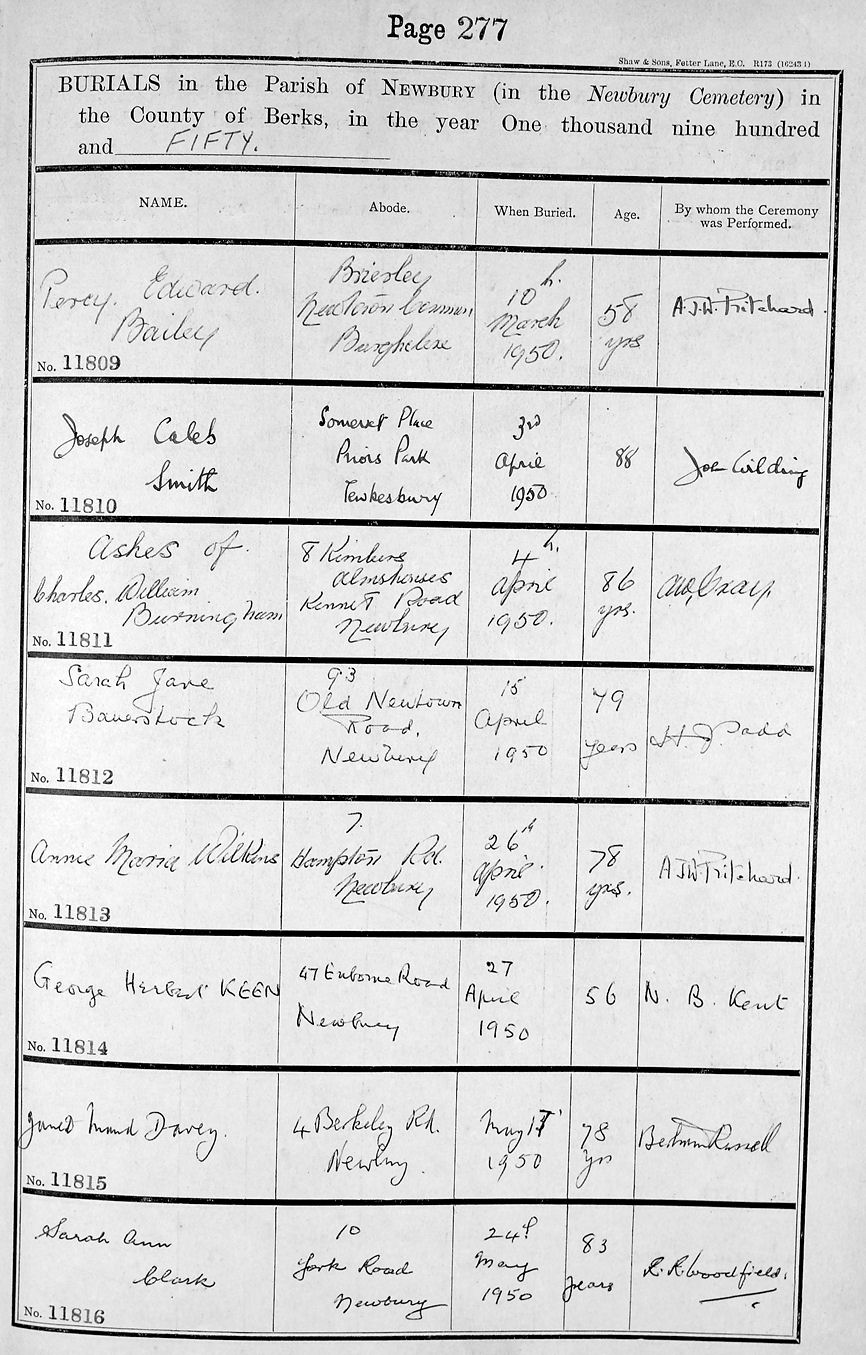 Page 277
Shaw & Sons, Fetter Lane, E.C. R173 (16243 1)
BURIALS in the Parish of NEWBURY (in the Newbury Cemetery) in
the County of Berks, in the year One thousand nine hundred
and FIFTY.
NAME. Abode. When Buried. Age. By whom the Ceremony was Performed.
Percy. Edward.
Bailey
No. 11809
Brierley
Newtown Common
Burghclere
10th.
March
1950.
58
yrs
A.J.W. Pritchard.
Joseph Caleb
Smith
No. 11810
Somerset Place
Priors Park
Tewkesbury
3rd
April
1950
88
John Wilding
Ashes of.
Charles. William
Burningham
No. 11811
8 Kimbers
Almshouses
Kennet Road
Newbury
4th.
April
1950.
86
yrs.
Gray.
Sarah Jane
Baverstock
No. 11812
93
Old Newtown
Road,
Newbury
15
April
1950
79
years
H. J. Dadd
Annie Maria Wilkins
No. 11813
7.
Hampton Rd.
Newbury
26th
April.
1950.
78
yrs.
A.J.W. Pritchard.
George Herbert KEEN
No. 11814
47 Enborne Road
Newbury
27
April
1950
56
N. B. Kent
Janet Maud Davey.
No. 11815
4 Berkeley Rd.
Newbury.
May
1950
78
yrs
Bertram Russell
Sarah Ann
Clark
No. 11816
10
York Road
Newbury
24th
May
1950
83
years
R. R. Woodfield.